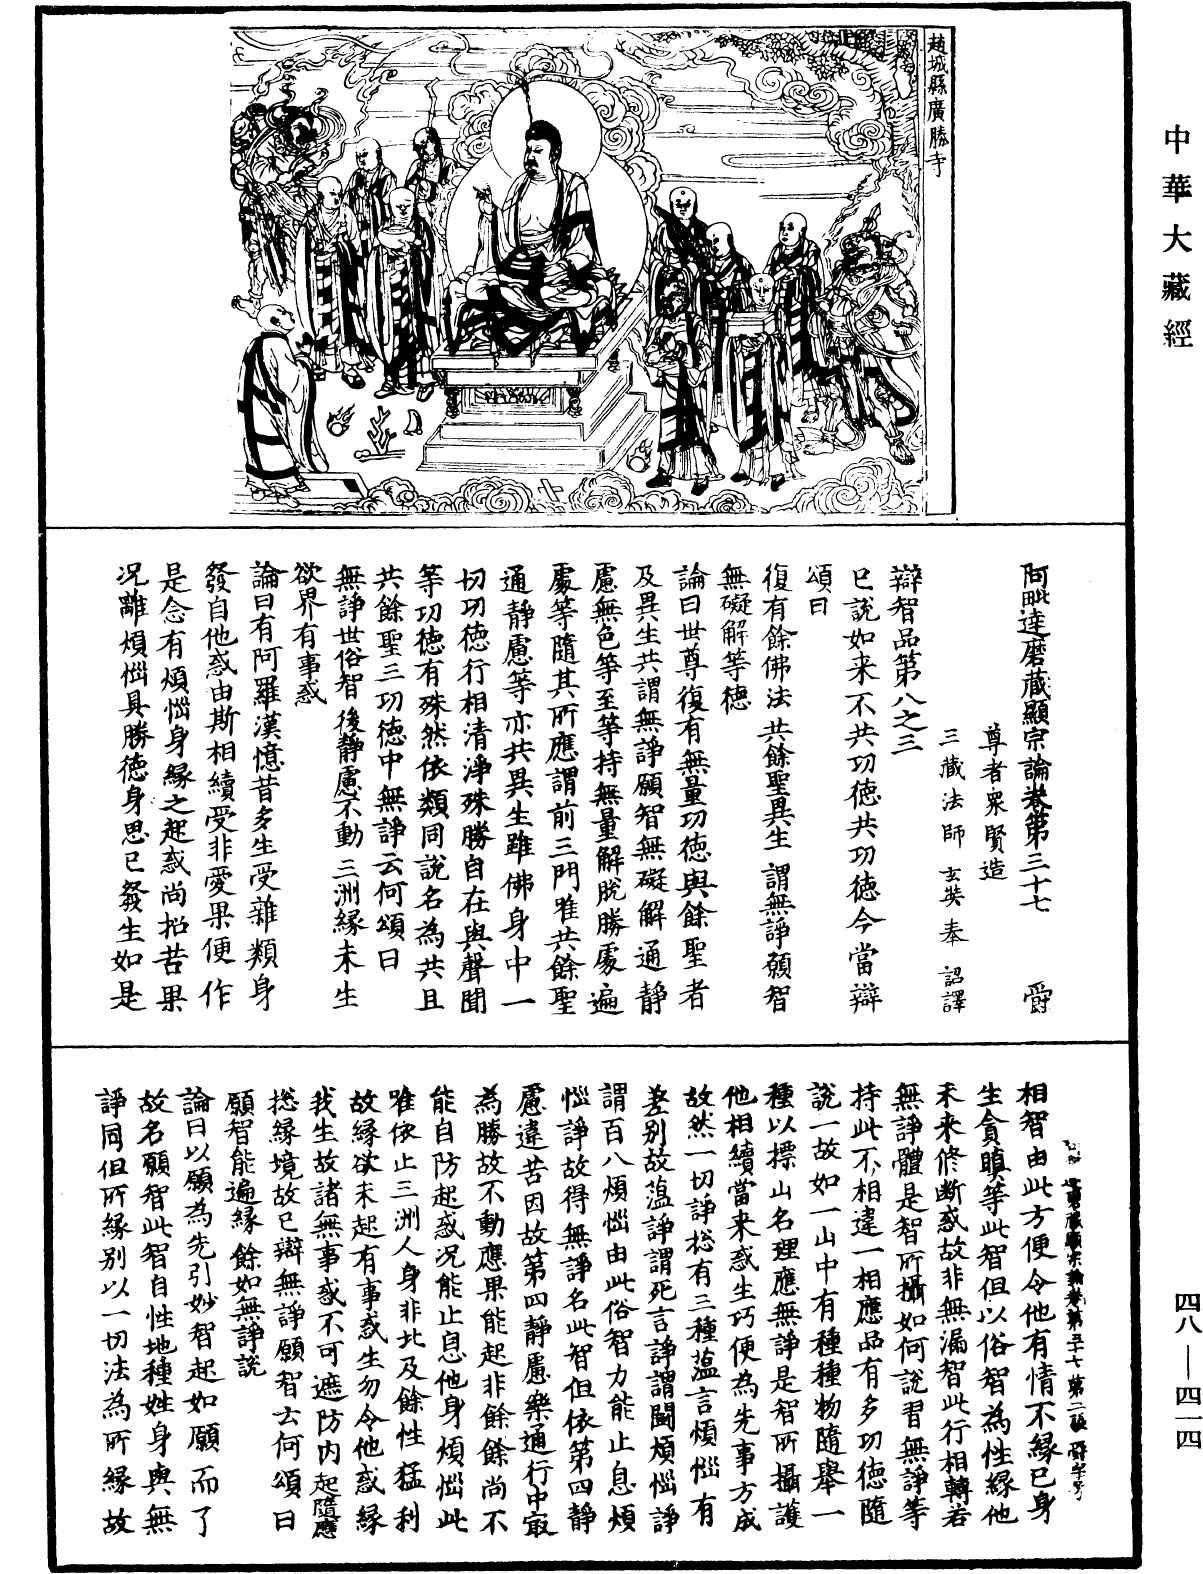 中華大藏經
趙城縣廣勝寺
阿毗達磨藏顯宗論卷第三十七 爵
尊者眾賢造
三藏法師玄奘奉 詔譯
辯智品第八之三
已說如来不共功德共功德今當辯
頌曰
復有餘佛法共餘聖異生 謂無諍願智
無礙解等德
論曰世尊復有無量功德與餘聖者
及異生共謂無諍願智無礙解通靜
慮無色等至等持無量解脫勝處遍
處等隨其所應謂前三門唯共餘聖
通靜慮等亦共異生雖佛身中一
切功德行相清淨殊勝自在與聲聞
等功德有殊然依類同說名為共且
共餘聖三功德中無諍云何頌曰
無諍世俗智後靜慮不動三洲緣未生
欲界有事惑
論曰有阿羅漢憶昔多生受雜類身
發自他惑由斯相續受非愛果便作
是念有煩惱身緣之起惑尚招苦果
况離煩惱具勝德身思已發生如是
相智由此方便令他有情不緣已身
生貪瞋等此智但以俗智為性緣他
未来修斷惑故非無漏智此行相轉若
無諍體是智所攝如何說習無諍等
持此不相違一相應品有多功德隨
說一故如一山中有種種物隨舉一
種以標山名理應無諍是智所攝護
他相續當来惑生巧便為先事方成
故然一切諍惣有三種薀言煩惱有
差別故薀諍謂死言諍謂鬪煩惱諍
謂百八煩惱由此俗智力能止息煩
惱諍故得無諍名此智但依第四靜
慮違苦因故第四靜慮樂通行中㝡
為勝故不動應果能起非餘餘尚不
能自防起惑况能止息他身煩惱此
唯依止三洲人身非北及餘性猛利
故緣欲未起有事惑生勿令他惑緣
我生故諸無事惑不可遮防內起隨應
惣緣境故已辯無諍願智云何頌曰
願智能遍緣 餘如無諍說
論曰以願為先引妙智起如願而了
故名願智此智自性地種姓身與無
諍同但所緣別以一切法為所緣故
四八—四一四